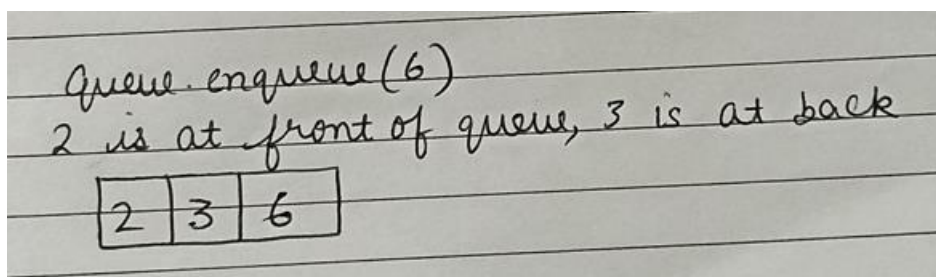 Queue.enqueue(6)
2 is at front of queue, 3 is at back
2 3 6